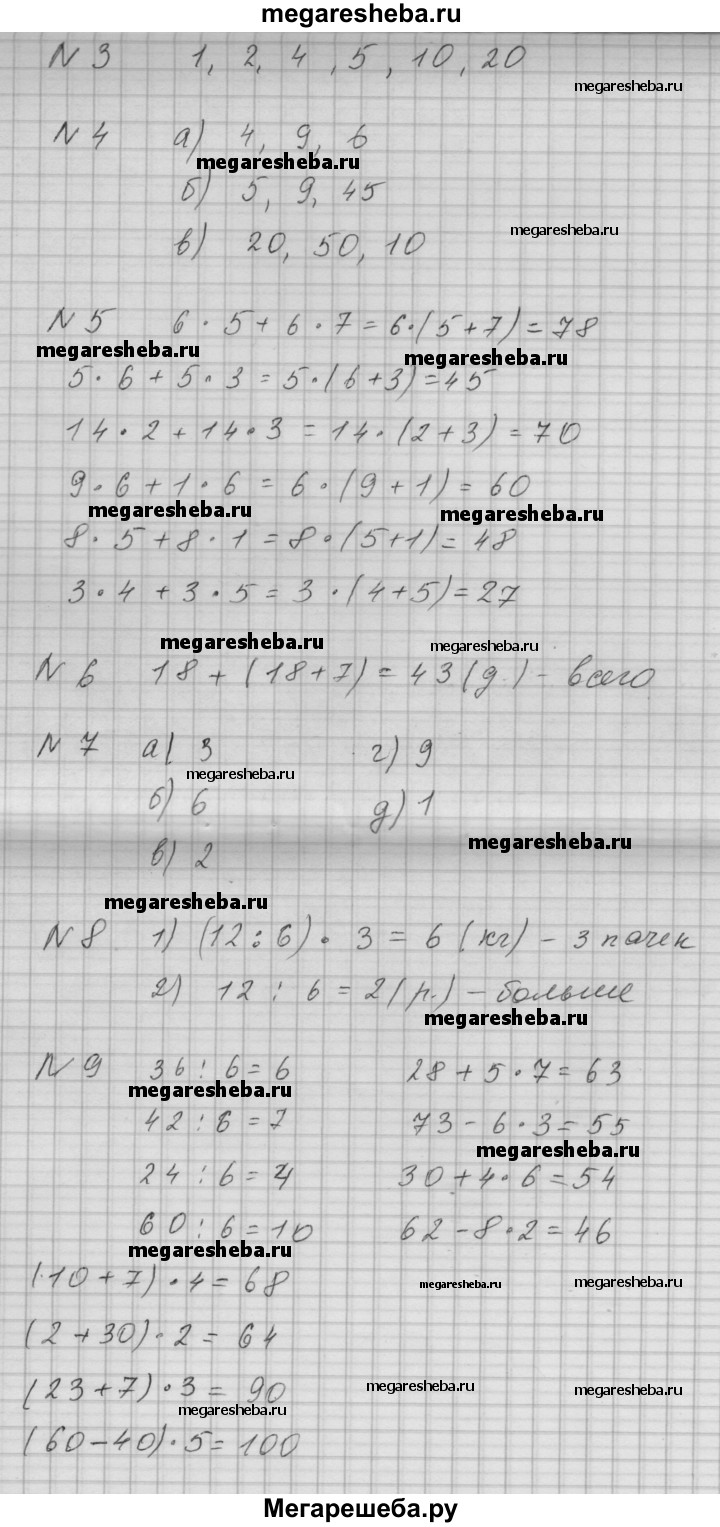 megaresheba.ru
N 3 1, 2, 4, 5, 10, 20
megaresheba.ru
N 4 а) 4, 9, 6
megaresheba.ru
б) 5, 9, 45
megaresheba.ru
в) 20, 50, 10
N 5 6 · 5 + 6 · 7 = 6 · (5 + 7) = 78
megaresheba.ru megaresheba.ru
5 · 6 + 5 · 3 = 5 · (6 + 3) = 45
14 · 2 + 14 · 3 = 14 · (2 + 3) = 70
9 · 6 + 1 · 6 = 6 · (9 + 1) = 60
megaresheba.ru megaresheba.ru
8 · 5 + 8 · 1 = 8 · (5 + 1) = 48
3 · 4 + 3 · 5 = 3 · (4 + 5) = 27
megaresheba.ru megaresheba.ru
N 6 18 + (18 + 7) = 43 (д.) - всего
N 7 а) 3 г) 9
megaresheba.ru
б) 6 д) 1
megaresheba.ru
в) 2
megaresheba.ru
N 8 1) (12 : 6) · 3 = 6 (кг) - 3 пачек
2) 12 : 6 = 2 (р.) - больше
megaresheba.ru
N 9 36 : 6 = 6 28 + 5 · 7 = 63
megaresheba.ru
42 : 6 = 7 73 - 6 · 3 = 55
megaresheba.ru
24 : 6 = 4 30 + 4 · 6 = 54
60 : 6 = 10 62 - 8 · 2 = 46
megaresheba.ru
(10 + 7) · 4 = 68
megaresheba.ru megaresheba.ru
(2 + 30) · 2 = 64
(23 + 7) · 3 = 90
megaresheba.ru megaresheba.ru
megaresheba.ru
(60 - 40) · 5 = 100
Мегарешеба.ру